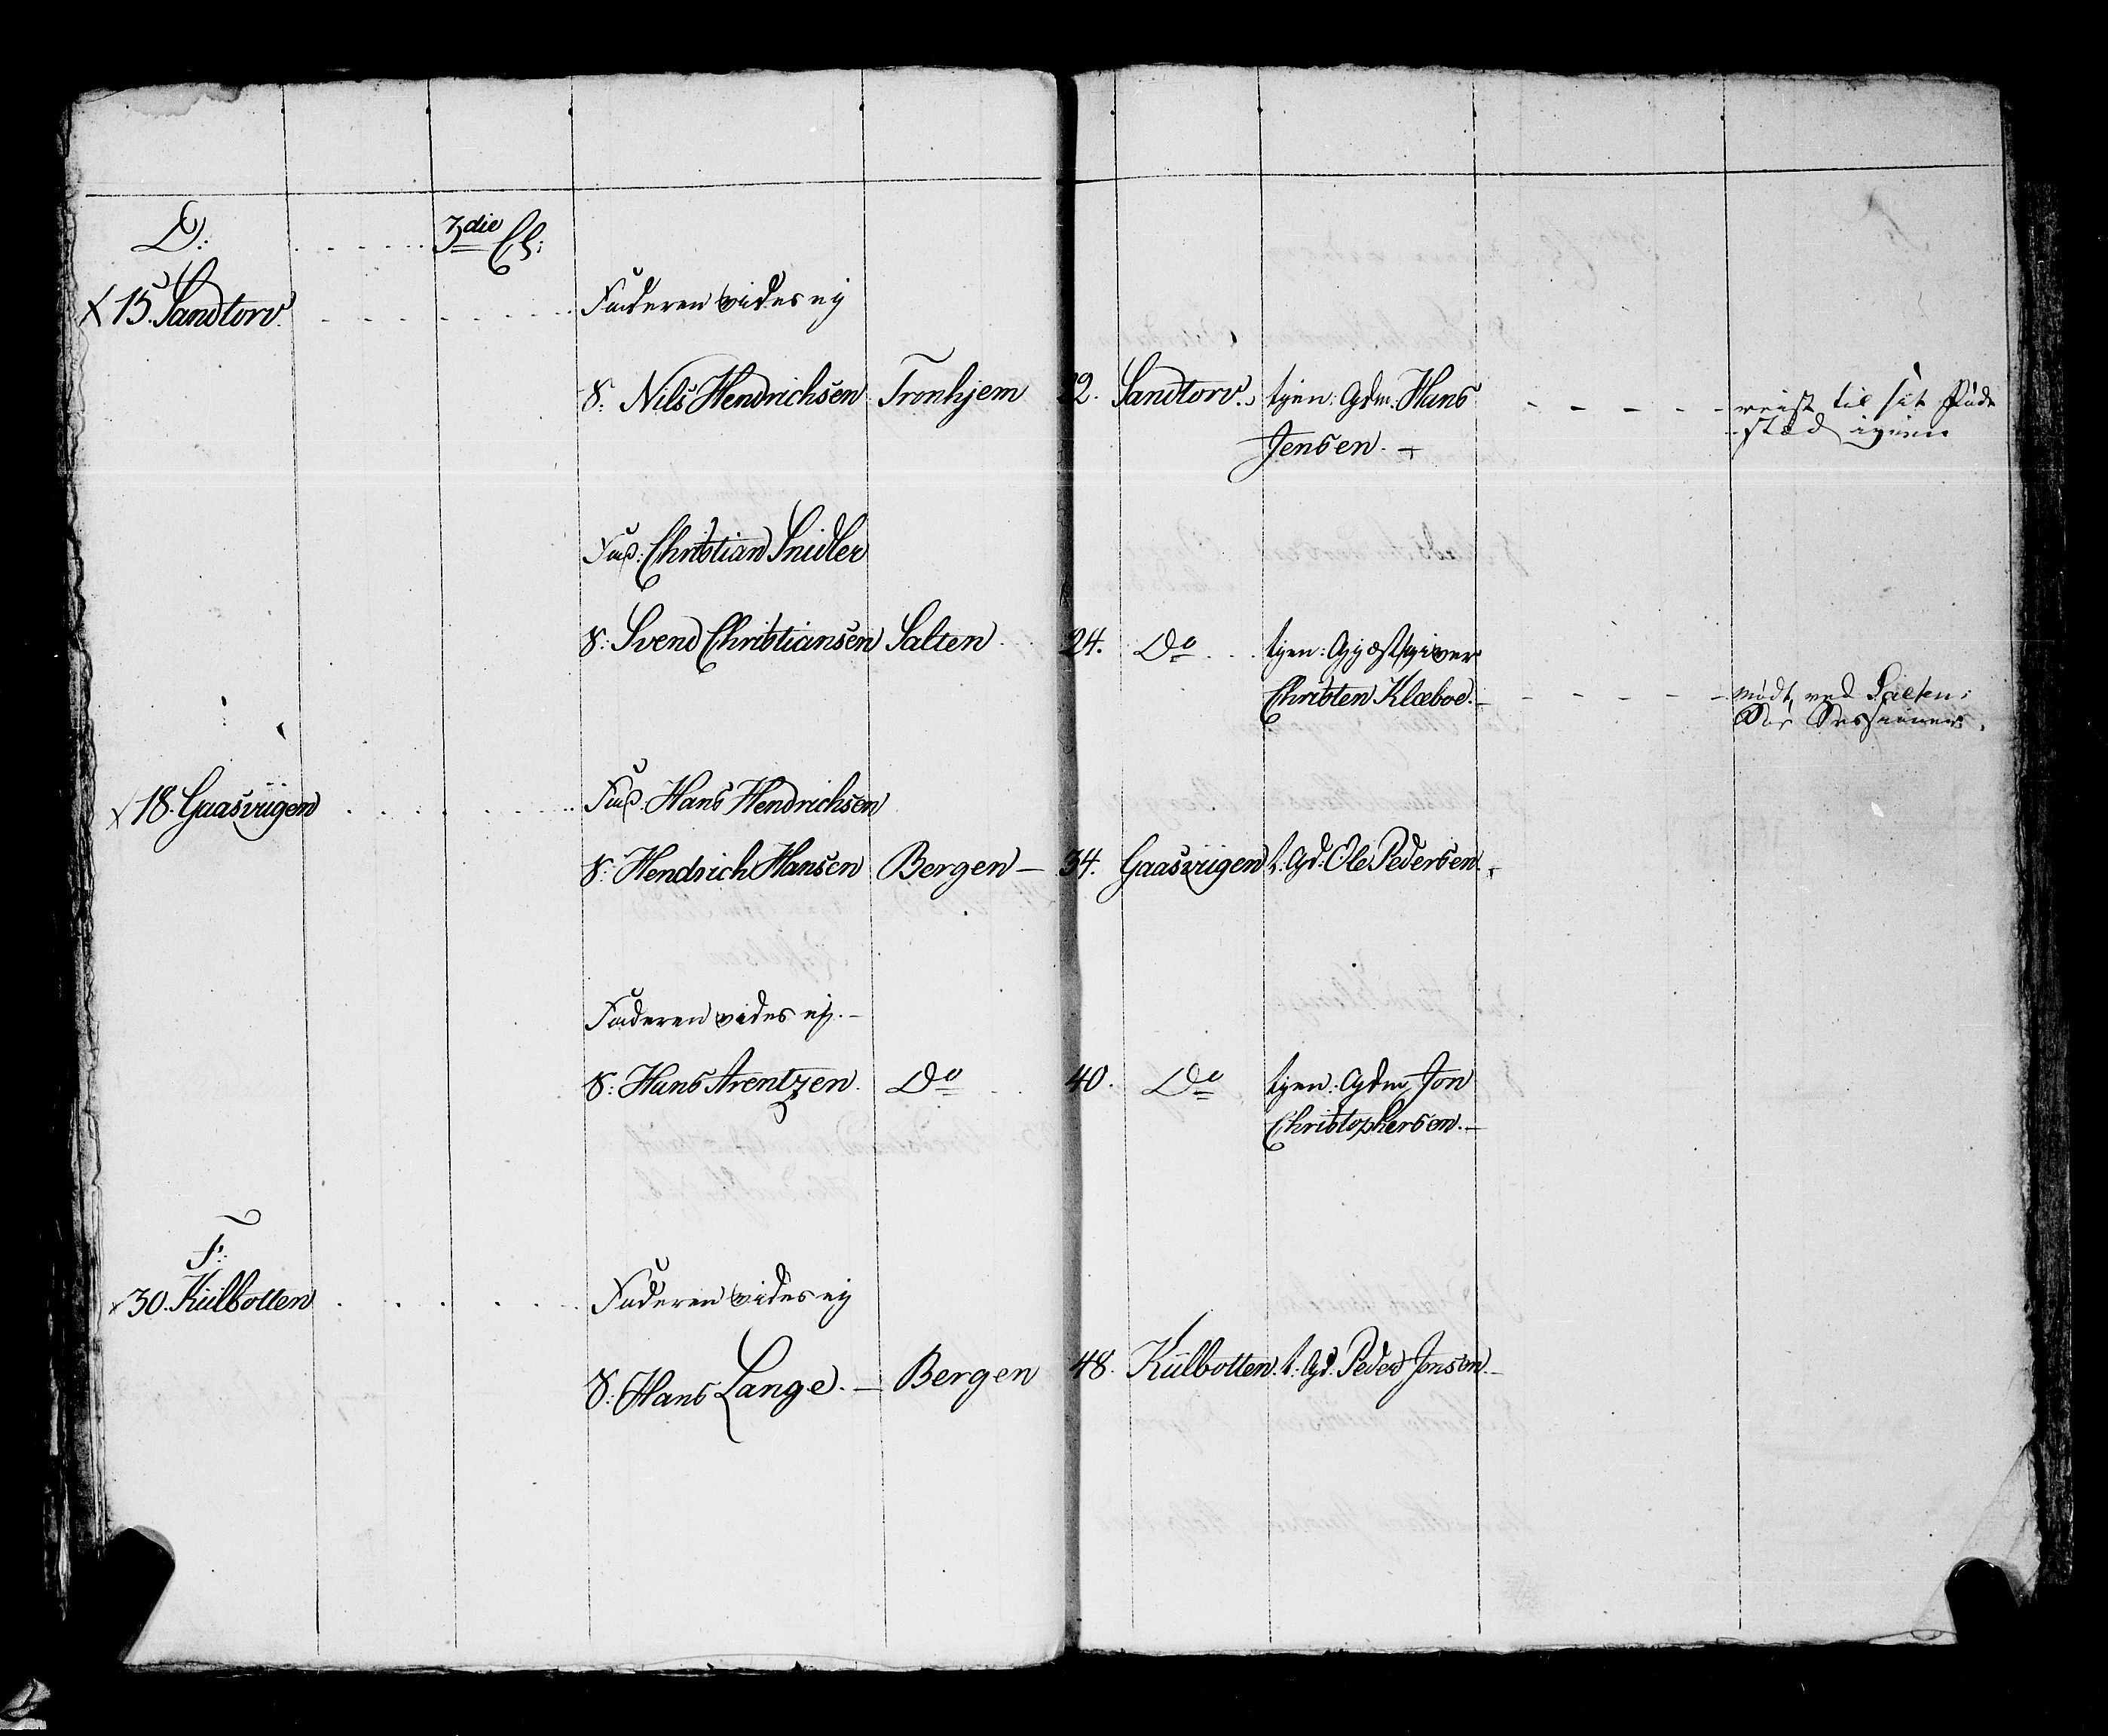 D: 3die Cl:
X 15. Sandtorv. Faderen vides ej
S: Nils Hendrichsen Tronhjem 22. Sandtorv. tjen: Gdm. Hans reist til sit Føde
Jensen. + stæd igien
Fad: Christian Snidler
S: Svend Christiansen Salten 24. Do tjen: Gjæstgiver
Christen Klæboe. mødt ved Salten:
Sessionen.
X 18. Gaasviigen Fad: Hans Hendrichsen
S: Hendrich Hansen Bergen 34. Gaasviigen t. Gd: Ole Pedersen.
Faderen vides ej.
S: Hans Arentzen. Do 40. Do tjen: Gdm Jon
Christophersen.
F:
x 30. Kiilbotten Faderen vides ej
S: Hans Lange. Bergen 48. Kiilbotten. t. Gd. Peder Jensen.